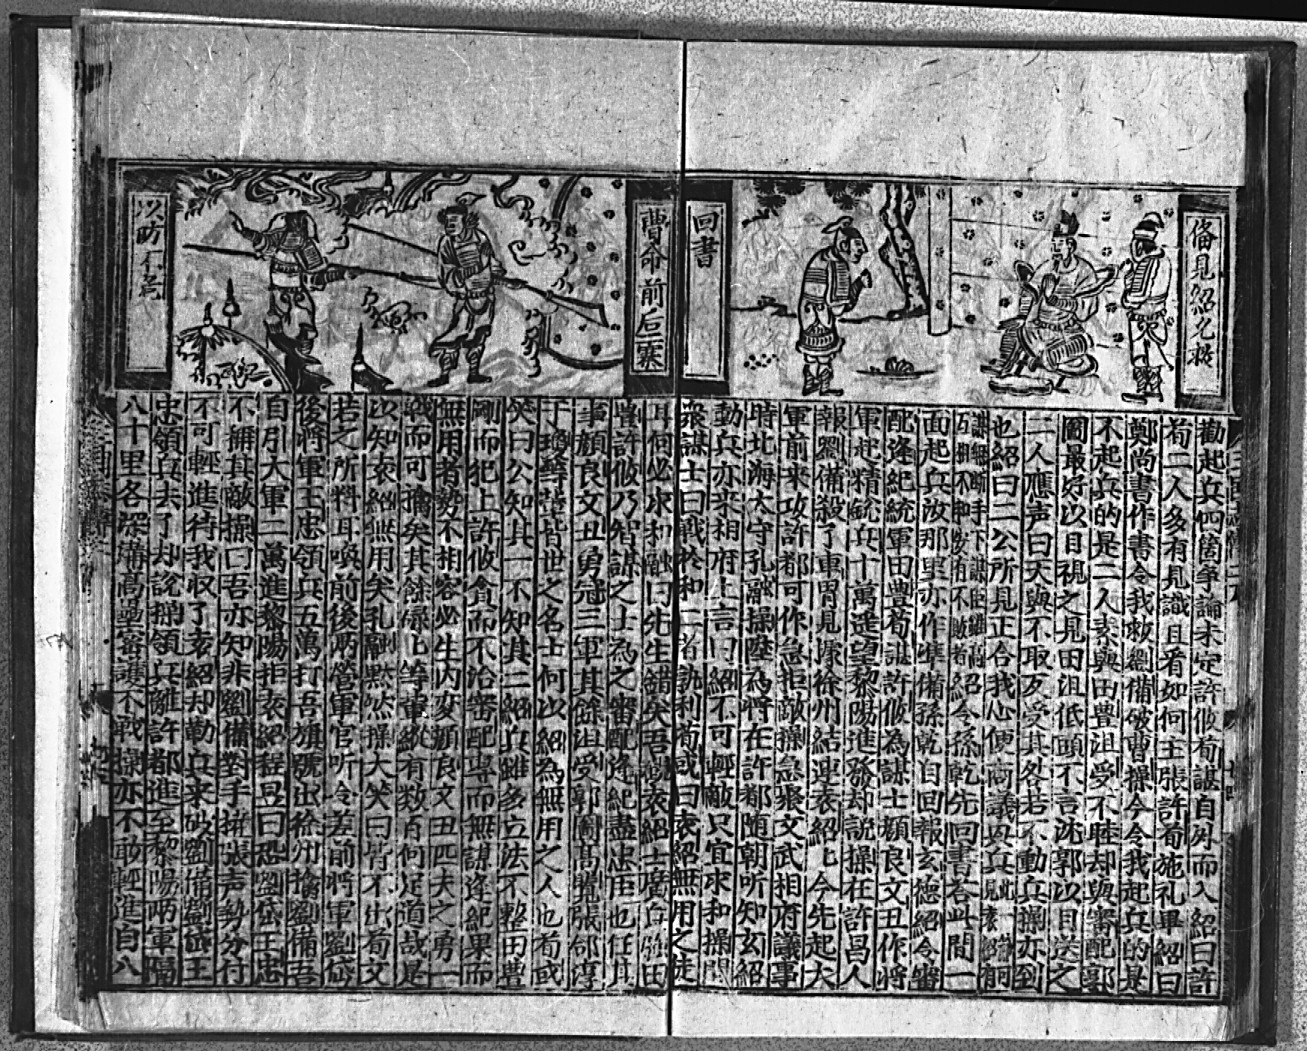 備見紹允救
回書
勸起兵四箇爭論未定許攸荀諶自外而入紹曰許
荀二人多有見識且看如何主張許荀施礼畢紹曰
鄭尚書作書令我救劉備破曹操今令我起兵的是
不起兵的是二人素與田豊沮受不睦却與審配郭
圖最好以目視之見田沮低頭不言沈郭以目送之
二人應声曰天與不取反受其咎若不動兵操亦到
也紹曰二公所見正合我心便商議
面起兵汝那里亦作準備孫乾自回報玄德紹令審
配逢紀統軍田豊荀諶許攸為謀士顔良文丑作將
軍起精統兵十萬進望黎陽進發却說操在許昌人
報劉備殺了車胄見據徐州結連袁紹上今先起大
軍前来攻許都可作急拒敵操急聚文武相府議事
時北海太守孔融操陞為將在許都随朝听知玄紹
動兵亦来相府上言曰紹不可輕敵只宜求和操問
衆謀士曰戰於和二者孰利荀或曰袁紹無用之徒
曹命前后二寨
以防不虞
耳何必求和融曰先生錯矣吾觀袁紹士廣兵強田
豊許攸乃智謀之士為之審配逢紀盡忠臣也任其
事顔良文丑勇冠三軍其餘沮受郭圖高覽張郃淳
于瓊等輩皆世之名士何以紹為無用之人也荀或
笑曰公知其一不知其二紹兵雖多立法不整田豊
剛而犯上許攸貪而不治審配專而無謀逢紀果而
無用者勢不相容必生内変顔良文丑匹夫之勇一
戰而可擒矣其餘碌上等輩縱有数百何足道哉是
以知袁紹無用矣孔融黙然操大笑曰皆不出荀文
若之所料耳喚前後兩營軍官听令差前將軍劉岱
後將軍王忠領兵五萬打吾旗號出徐州擒劉備吾
自引大軍二萬進黎陽拒袁紹程昱曰恐劉岱王忠
不稱其敵操曰吾亦知非劉備對手拼張声勢分付
不可輕進待我収了袁紹却勒兵来破劉備劉岱王
忠領兵去了却說操領兵離許都進至黎陽两軍隔
八十里各深溝高壘審護不戰操亦不敢輕進自八